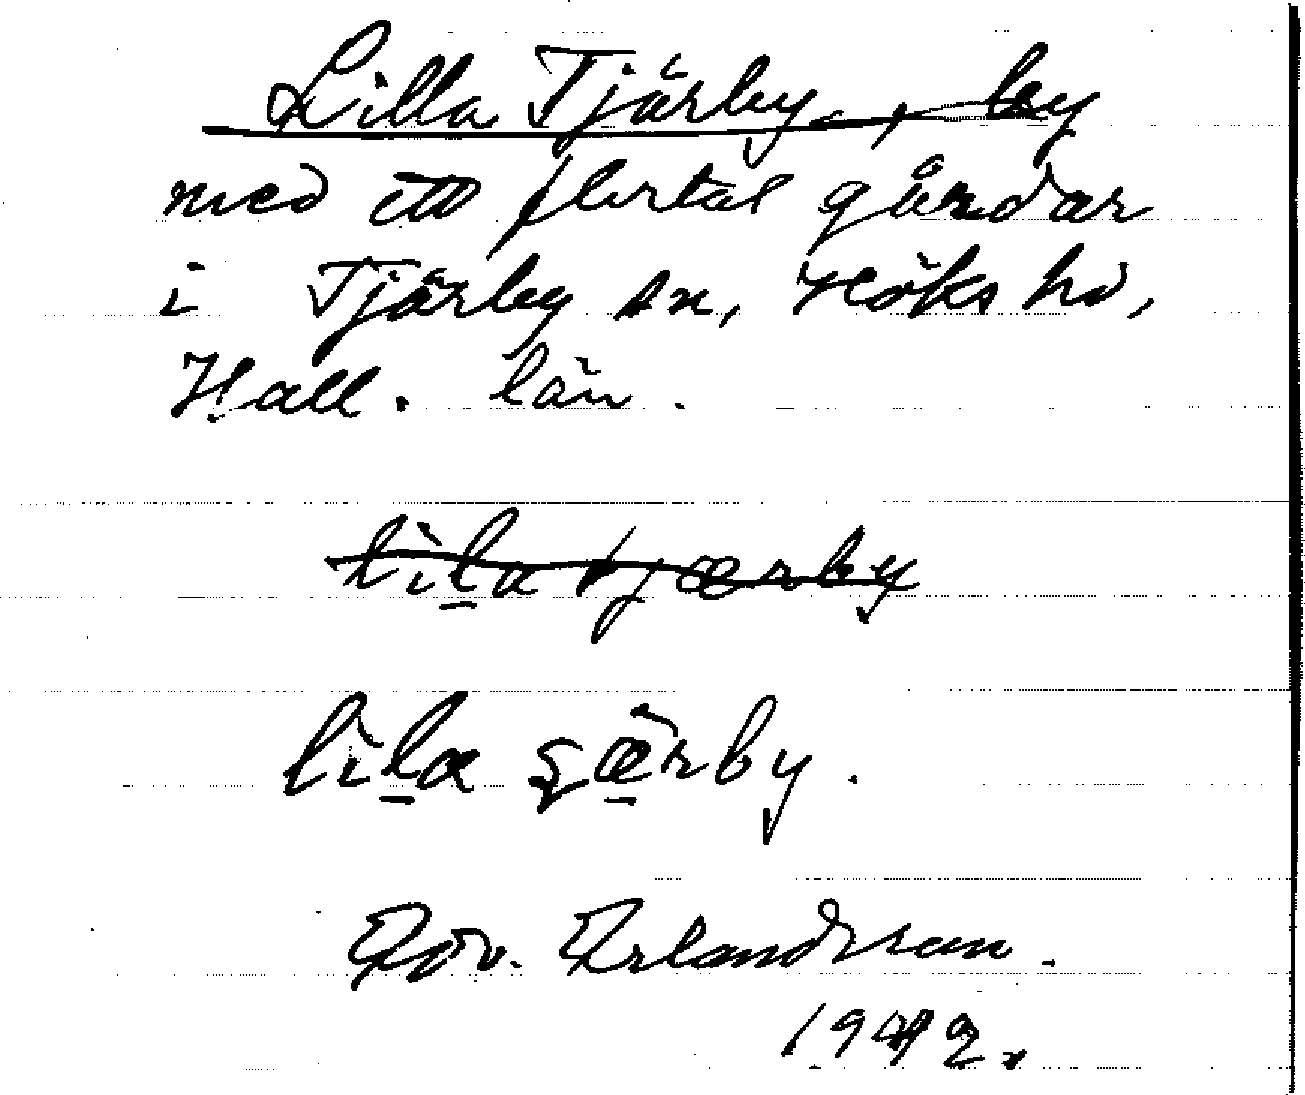 Lilla Tjärby, by
med ett flertal gårdar
i Tjärby sn, Höks hd,
Hall. län.
lìla tjærby
lìla ȿæ̀rby.
Edv. Erlandsson.
1942.